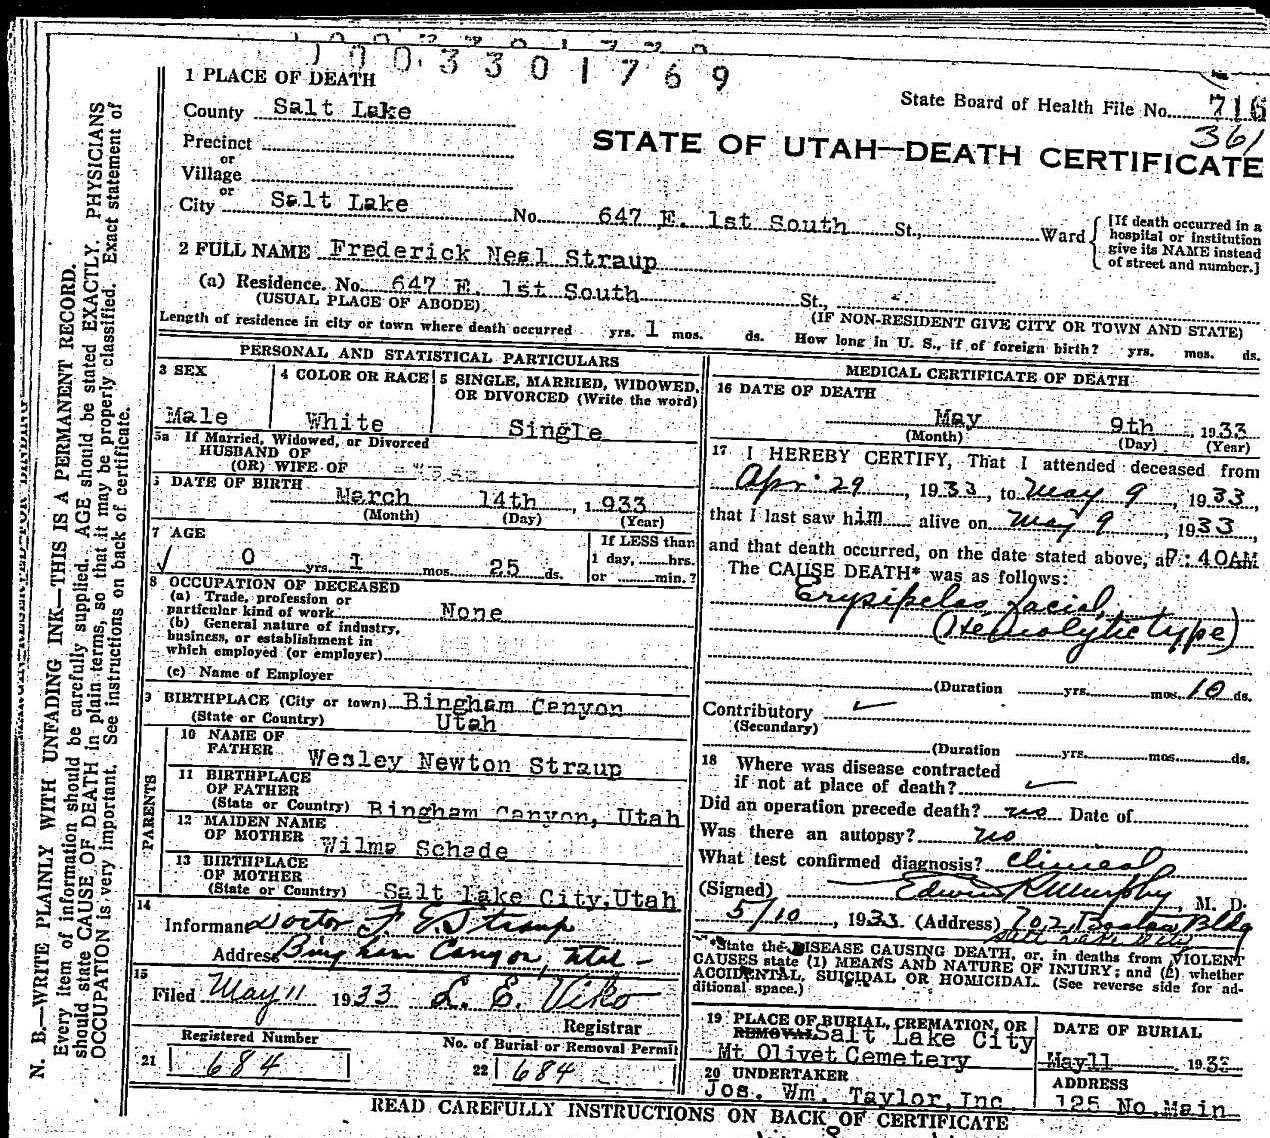 1003301769
1 PLACE OF DEATH
State Board of Health File No. 716
County Salt Lake
361
Precinct
STATE OF UTAH—DEATH CERTIFICATE
or
Village
or
City Salt Lake No. 647 E. 1st South St., Ward
[If death occurred in a
hospital or institution
give its NAME instead
of street and number.]
2 FULL NAME Frederick Neal Straup
(a) Residence. No. 647 E. 1st South St.,
(USUAL PLACE OF ABODE) (IF NON-RESIDENT GIVE CITY OR TOWN AND STATE)
Length of residence in city or town where death occurred yrs. 1 mos. ds. How long in U. S., if of foreign birth? yrs. mos. ds.
PERSONAL AND STATISTICAL PARTICULARS
3 SEX
Male
4 COLOR OR RACE
White
5 SINGLE, MARRIED, WIDOWED,
OR DIVORCED (Write the word)
Single
5a If Married, Widowed, or Divorced
HUSBAND OF
(OR) WIFE OF
6 DATE OF BIRTH
March 14th, 1933
(Month) (Day) (Year)
7 AGE
0 yrs. 1 mos. 25 ds.
If LESS than
1 day, hrs.
or min.?
8 OCCUPATION OF DECEASED
(a) Trade, profession or
particular kind of work None
(b) General nature of industry,
business, or establishment in
which employed (or employer)
(c) Name of Employer
9 BIRTHPLACE (City or town) Bingham Canyon
(State or Country) Utah
PARENTS
10 NAME OF
FATHER Wesley Newton Straup
11 BIRTHPLACE
OF FATHER
(State or Country) Bingham Canyon, Utah
12 MAIDEN NAME
OF MOTHER Wilma Schade
13 BIRTHPLACE
OF MOTHER
(State or Country) Salt Lake City, Utah
14
Informant Doctor F. E. Straup
Address Bingham Canyon, Utah
15
Filed May 11 1933 L. E. Viko
Registrar
Registered Number
21 684
No. of Burial or Removal Permit
22 684
MEDICAL CERTIFICATE OF DEATH
16 DATE OF DEATH
May 9th, 1933
(Month) (Day) (Year)
17 I HEREBY CERTIFY, That I attended deceased from
Apr. 29, 1933, to May 9, 1933,
that I last saw him alive on May 9, 1933,
and that death occurred, on the date stated above, at :40AM
The CAUSE DEATH* was as follows:
Erysipelas facial,
(Hemolytic type)
(Duration yrs. mos. 10 ds.
Contributory
(Secondary)
(Duration yrs. mos. ds.
18 Where was disease contracted
if not at place of death?
Did an operation precede death? no Date of
Was there an autopsy? no
What test confirmed diagnosis? clinical
(Signed) Edwin R Murphy, M. D.
5/10, 1933 (Address) 702 Boston Bldg
Salt Lake City
*State the DISEASE CAUSING DEATH, or, in deaths from VIOLENT
CAUSES state (1) MEANS AND NATURE OF INJURY; and (2) whether
ACCIDENTAL, SUICIDAL OR HOMICIDAL. (See reverse side for ad-
ditional space.)
19 PLACE OF BURIAL, CREMATION, OR
REMOVAL Salt Lake City
Mt Olivet Cemetery
DATE OF BURIAL
May 11 1933
20 UNDERTAKER
Jos. Wm. Taylor, Inc.
ADDRESS
125 No. Main
READ CAREFULLY INSTRUCTIONS ON BACK OF CERTIFICATE
N. B.—WRITE PLAINLY WITH UNFADING INK—THIS IS A PERMANENT RECORD.
Every item of information should be carefully supplied. AGE should be stated EXACTLY. PHYSICIANS
should state CAUSE OF DEATH in plain terms, so that it may be properly classified. Exact statement of
OCCUPATION is very important. See instructions on back of certificate.